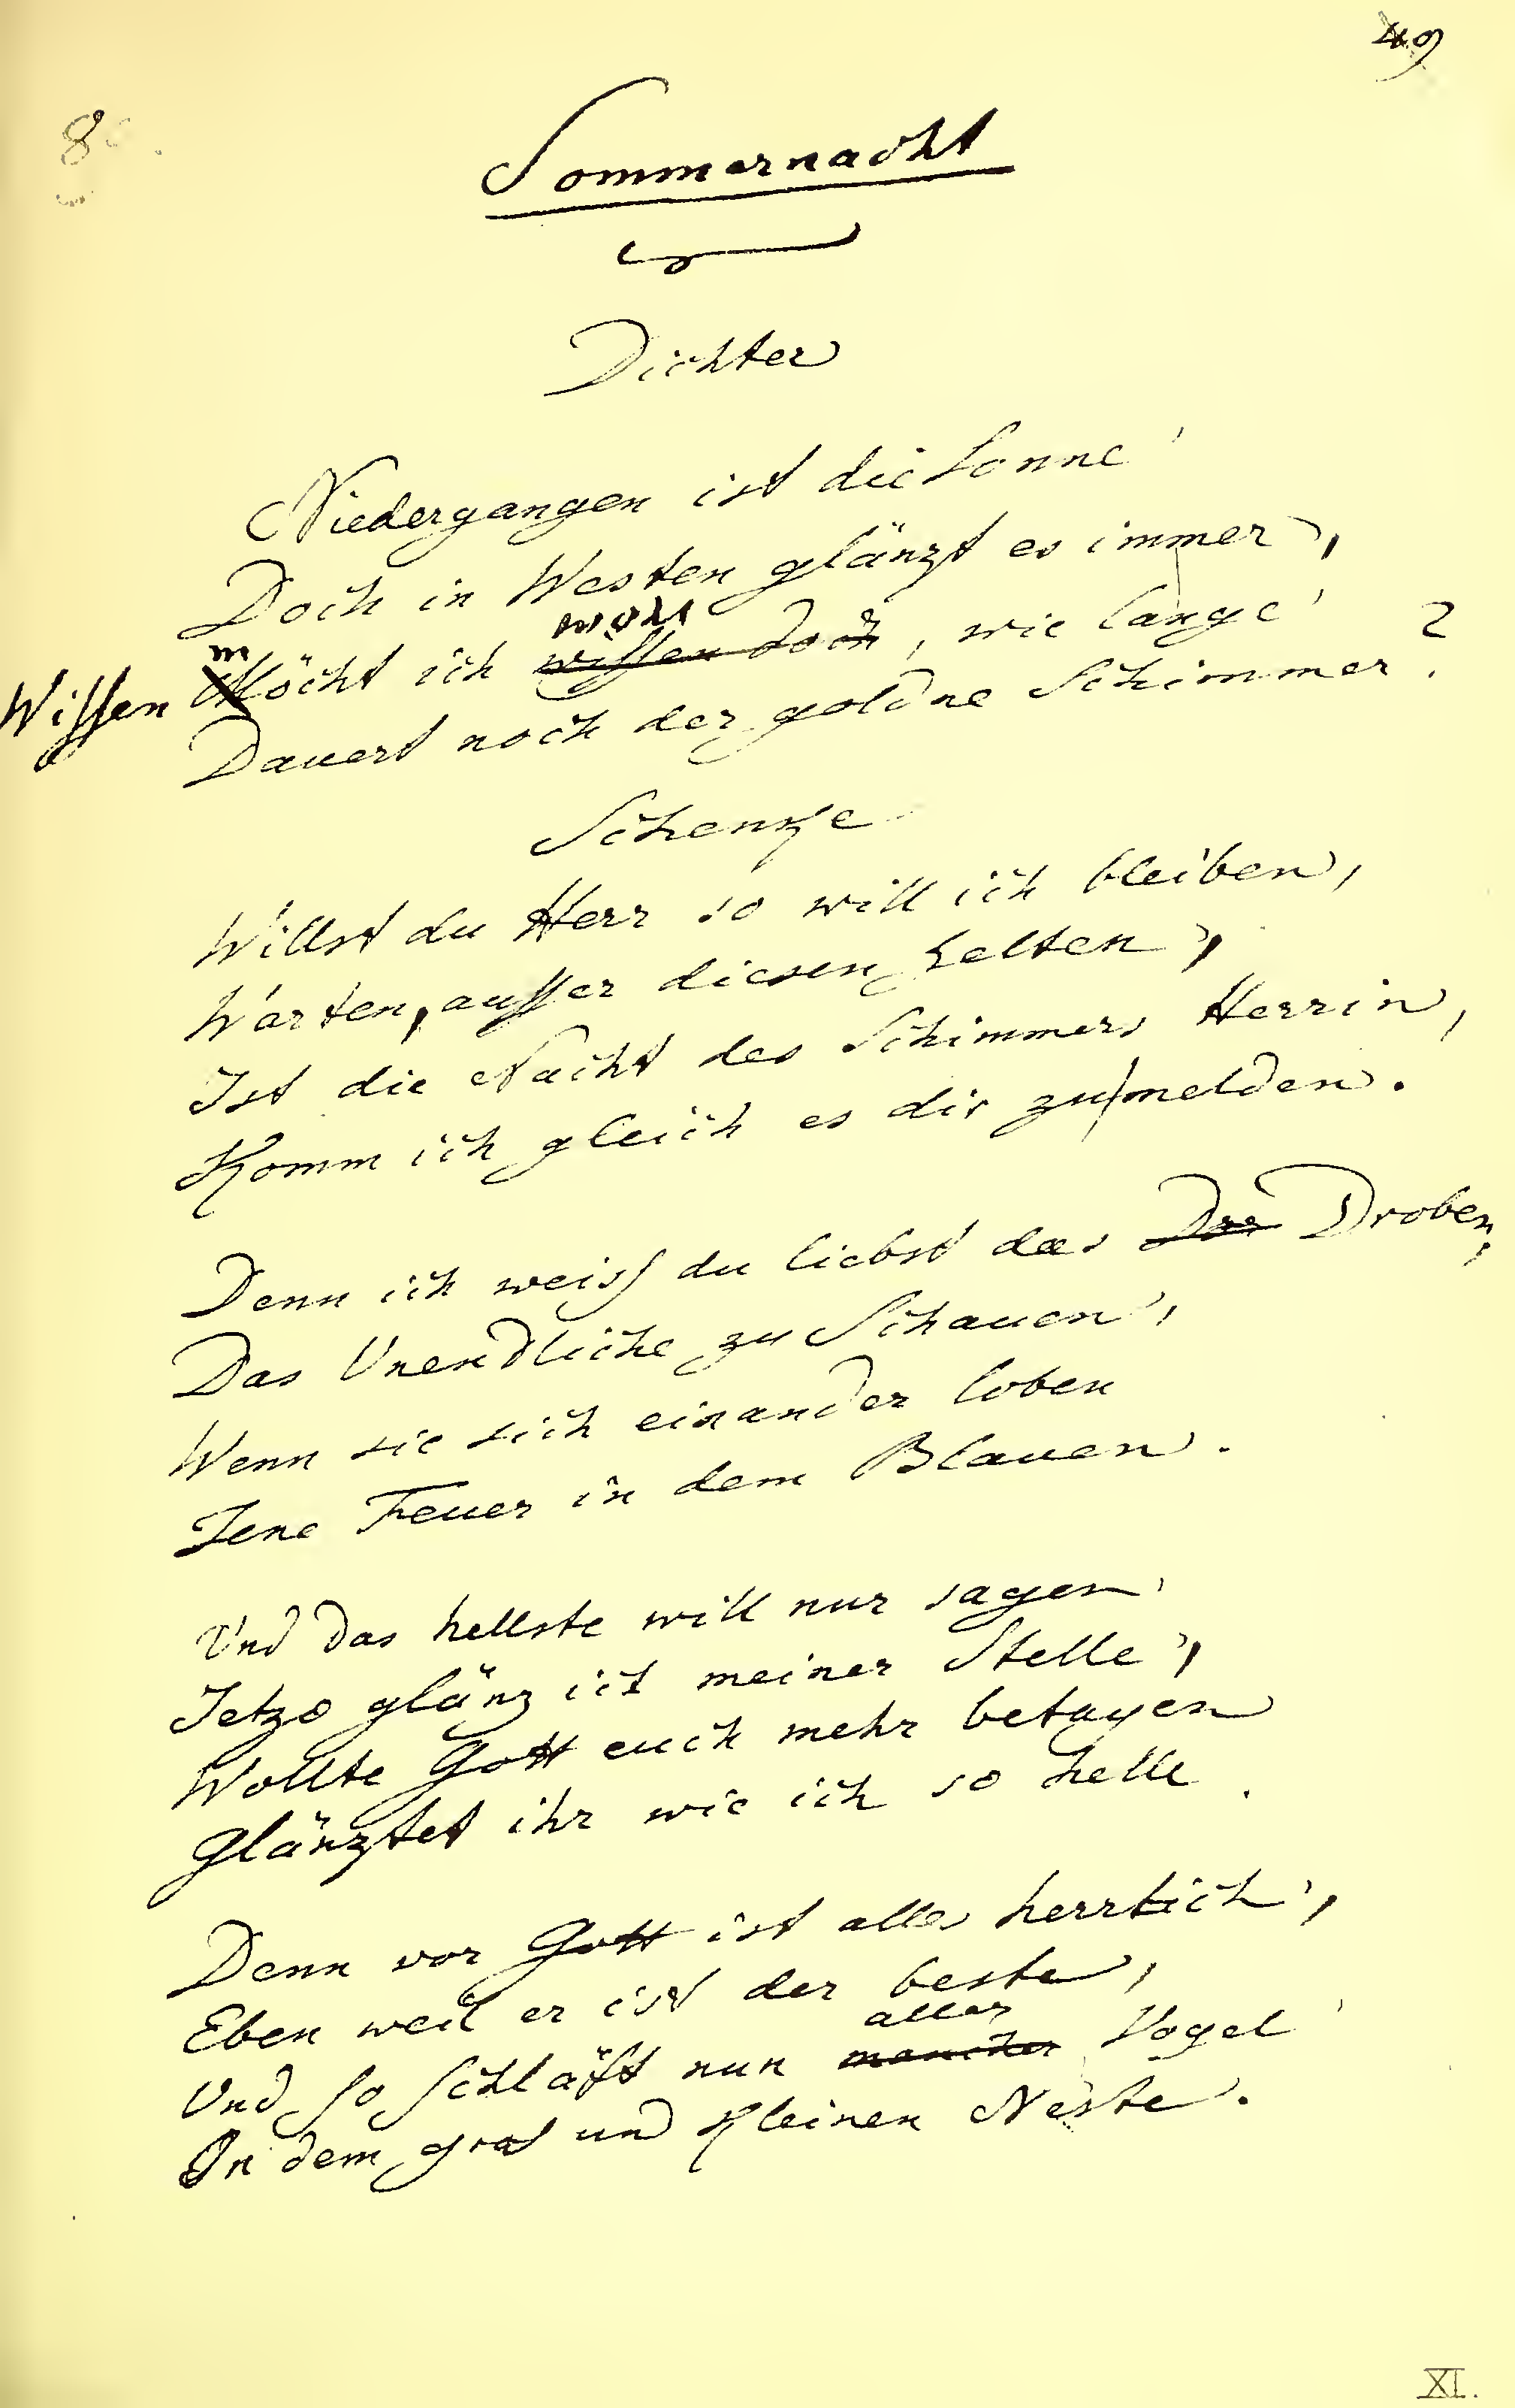 49
8
Sommernacht
Dichter
Niedergangen ist die Sonne
Doch in Westen glänzt es immer,
Wissen möcht ich wohl wissen doch, wie lange
Dauert noch der goldne Schimmer?
Schenke
Willst du Herr so will ich bleiben,
Warten, ausser diesen Zelten,
Ist die Nacht des Schimmers Herrin,
Komm ich gleich es dir zu melden.
Denn ich weiss du liebst das Dro Droben,
Das Unendliche zu Schauen,
Wenn sie sich einander loben
Jene Feuer in dem Blauen.
Und das hellste will nur sagen
Jetzo glänz ich meiner Stelle,
Wollte Gott euch mehr betagen
Glänztet ihr wie ich so helle.
Denn vor Gott ist alles herrlich,
Eben weil er ist der beste,
Und so schläft nun aller mancher Vogel
In dem gros und kleinen Neste.
XI.